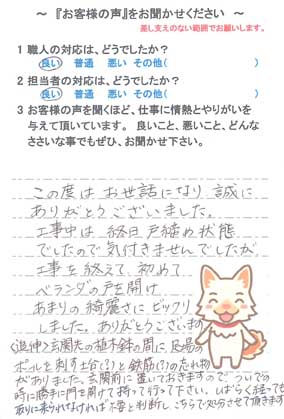 ～ 『お客様の声』をお聞かせください ～
差し支えのない範囲でお願いします。
1 職人の対応は、どうでしたか？
良い 普通 悪い その他( )
2 担当者の対応は、どうでしたか？
良い 普通 悪い その他( )
3 お客様の声を聞くほど、仕事に情熱とやりがいを
与えて頂いています。 良いこと、悪いこと、どんな
ささいな事でもぜひ、お聞かせ下さい。
この度は お世話になり 誠に
ありがとうございました。
工事中は 終日 戸締め状態
でしたので気付きませんでしたが
工事を終えて、初めて
ベランダの戸を開け
あまりの綺麗さに ビックリ
しました。ありがとうございます
〈追伸〉玄関先の植木鉢の間に、足場の
ポールを刺す土台(?)と鉄筋(?)の忘れ物
がありました。玄関前に置いておきますので ついでの
時に勝手に門を開けて持って行って下さい。しばらく経っても
取りに来られなければ不要と判断し、こちらで処分させて頂きます